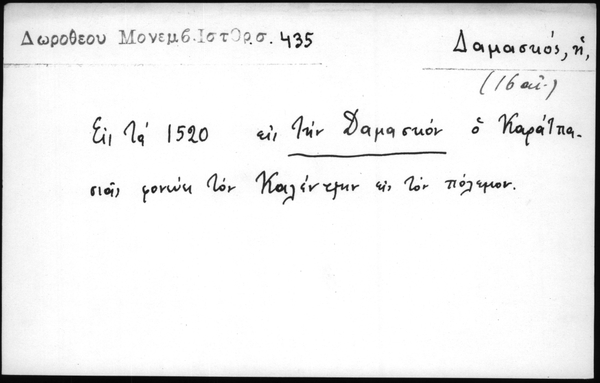 Δωροθεου Μονεμβ.Ιστορσ. 435
Δαμασκός, ἡ,
(16 αἰ.)
Εἰς τά 1520 εἰς τήν Δαμασκόν ὁ Καράτπα-
σιᾶς φονεύει τόν εἰς τόν πόλεμον.